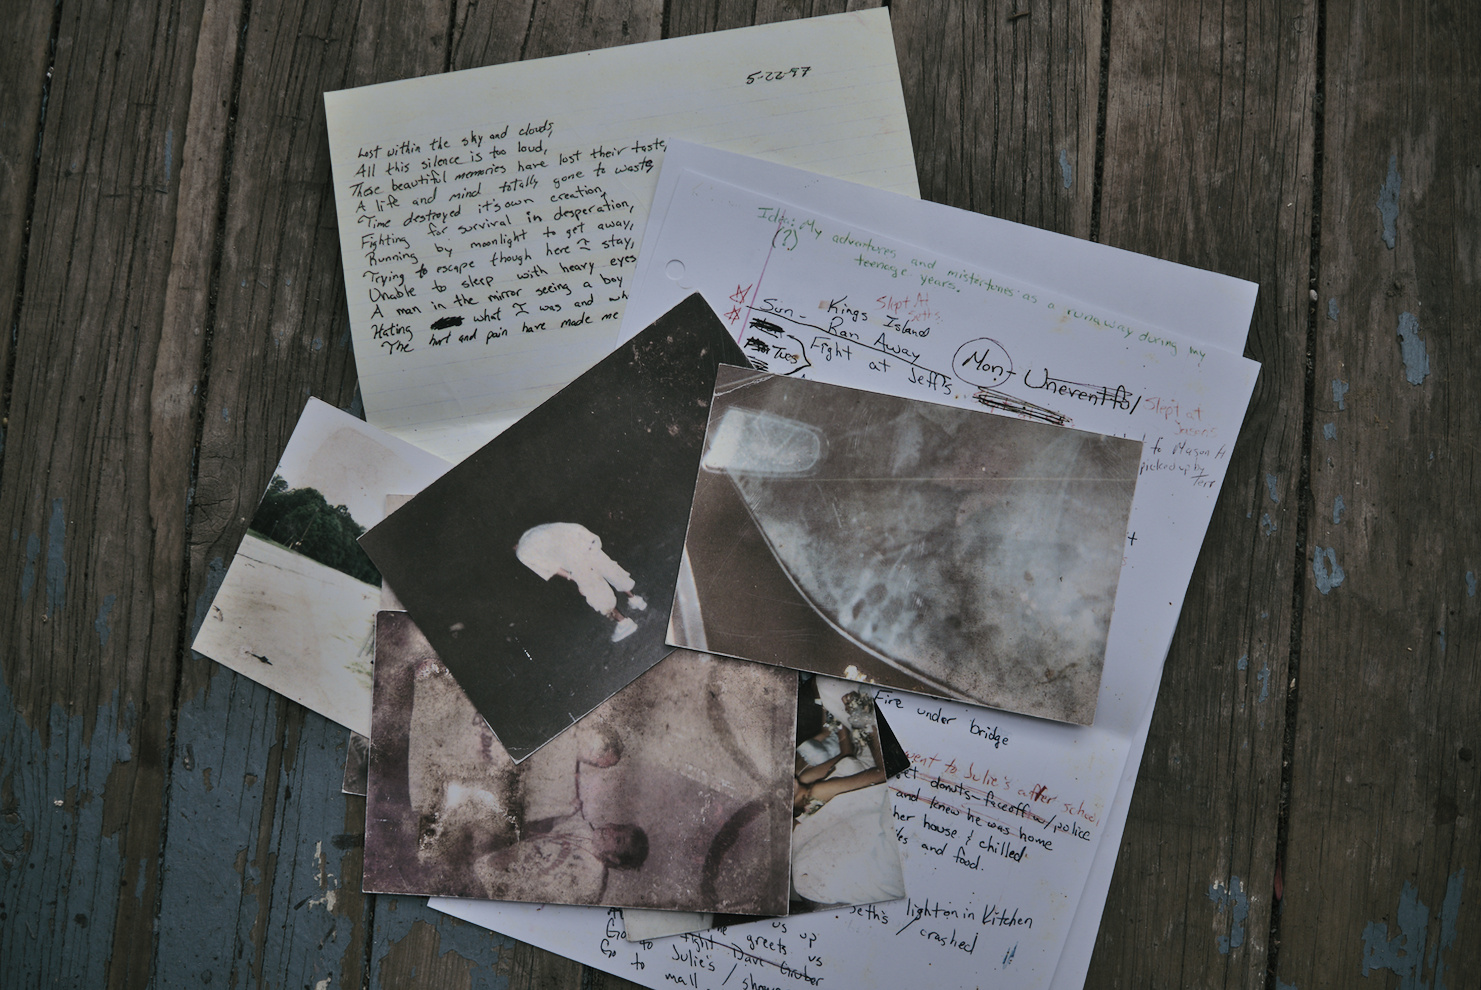 5-22-97
Lost within the sky and clouds,
All this silence is too loud,
These beautiful memories have lost their taste,
A life and mind totally gone to waste
Time destroyed it's own creation,
Fighting for survival in desperation,
Running by moonlight to get away,
Trying to escape though here I stay,
Unable to sleep with heavy eyes
A man in the mirror seeing a boy
Hating what I was and wh
The hurt and pain have made me
Idea: My adventures and misfortunes as a runaway during my
(?) teenage years.
Slept At
Seth's
Sun- Kings Island
Ran Away
Tues
Fight at Jeff's
Mon- Uneventful
Slept at
Jason's
to Mason H
picked up by
Terr
Fire under bridge
went to Julie's after school
get donuts-faceoff w/police
and knew he was home
her house & chilled
and food.
Seth's light on in Kitchen
/crashed
us up
Go the greets us
Go to fight Dave Gruber
Julie's / show
Go to mall